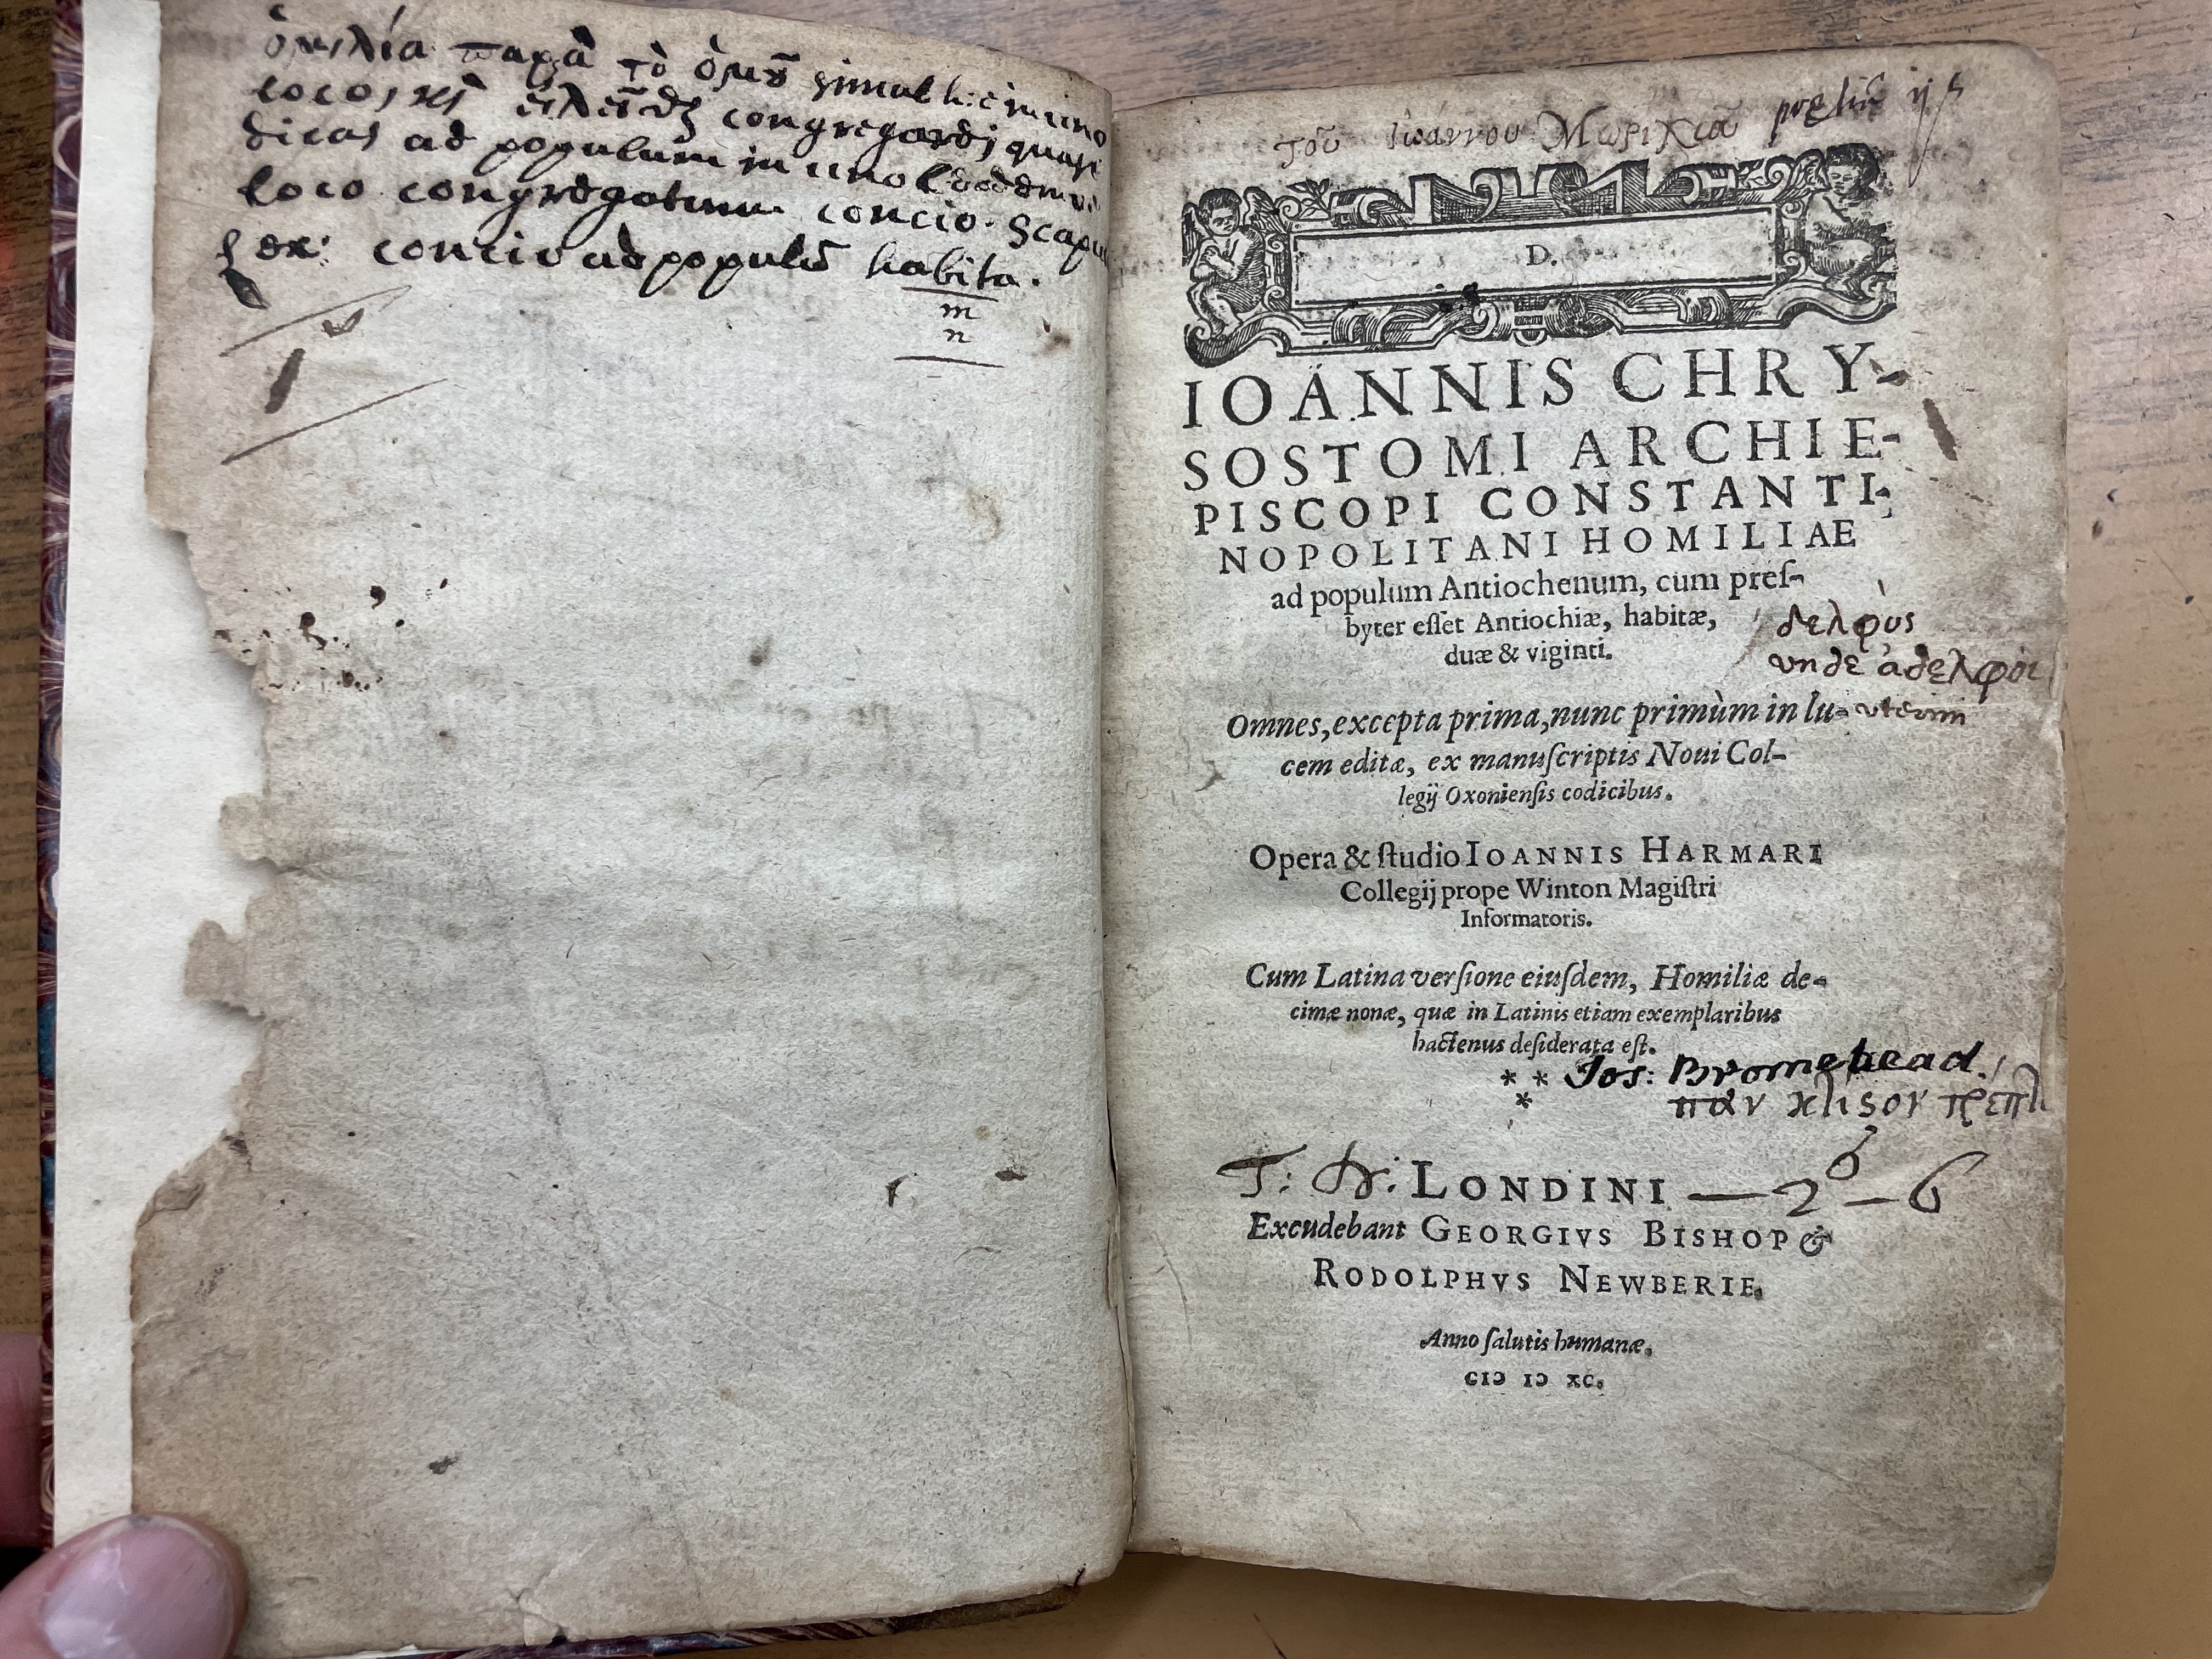 ὁμιλία παρὰ τὸ ὁμοῦ simul hic in uno
loco, κὶ congregari, quasi
dicas ad populum in uno eodemq
loco congregatum concio. Scapul
Lex: concio ad populū habita.
m
n
τοῦ Ἰωάννου Μωρικεᾶ ij s
D.
IOANNIS CHRY-
SOSTOMI ARCHIE-
PISCOPI CONSTANTI-
NOPOLITANI HOMILIAE
ad populum Antiochenum, cum preſ-
byter eſſet Antiochiæ, habitæ,
duæ & viginti.
δελφὺς
unde ἀδελφοὶ
uterini
Omnes, excepta prima, nunc primùm in lu-
cem editæ, ex manuſcriptis Noui Col-
legij Oxonienſis codicibus.
Opera & ſtudio IOANNIS HARMARI
Collegij prope Winton Magiſtri
Informatoris.
Cum Latina verſione eiuſdem, Homiliæ de-
cimæ nonæ, quæ in Latinis etiam exemplaribus
hactenus deſiderata eſt.
* * Jos: Bromehead.
*
πὰν
T: LONDINI — 2 – 6
Excudebant GEORGIVS BISHOP &
RODOLPHVS NEWBERIE.
Anno ſalutis humanæ.
CIↃ IↃ XC.